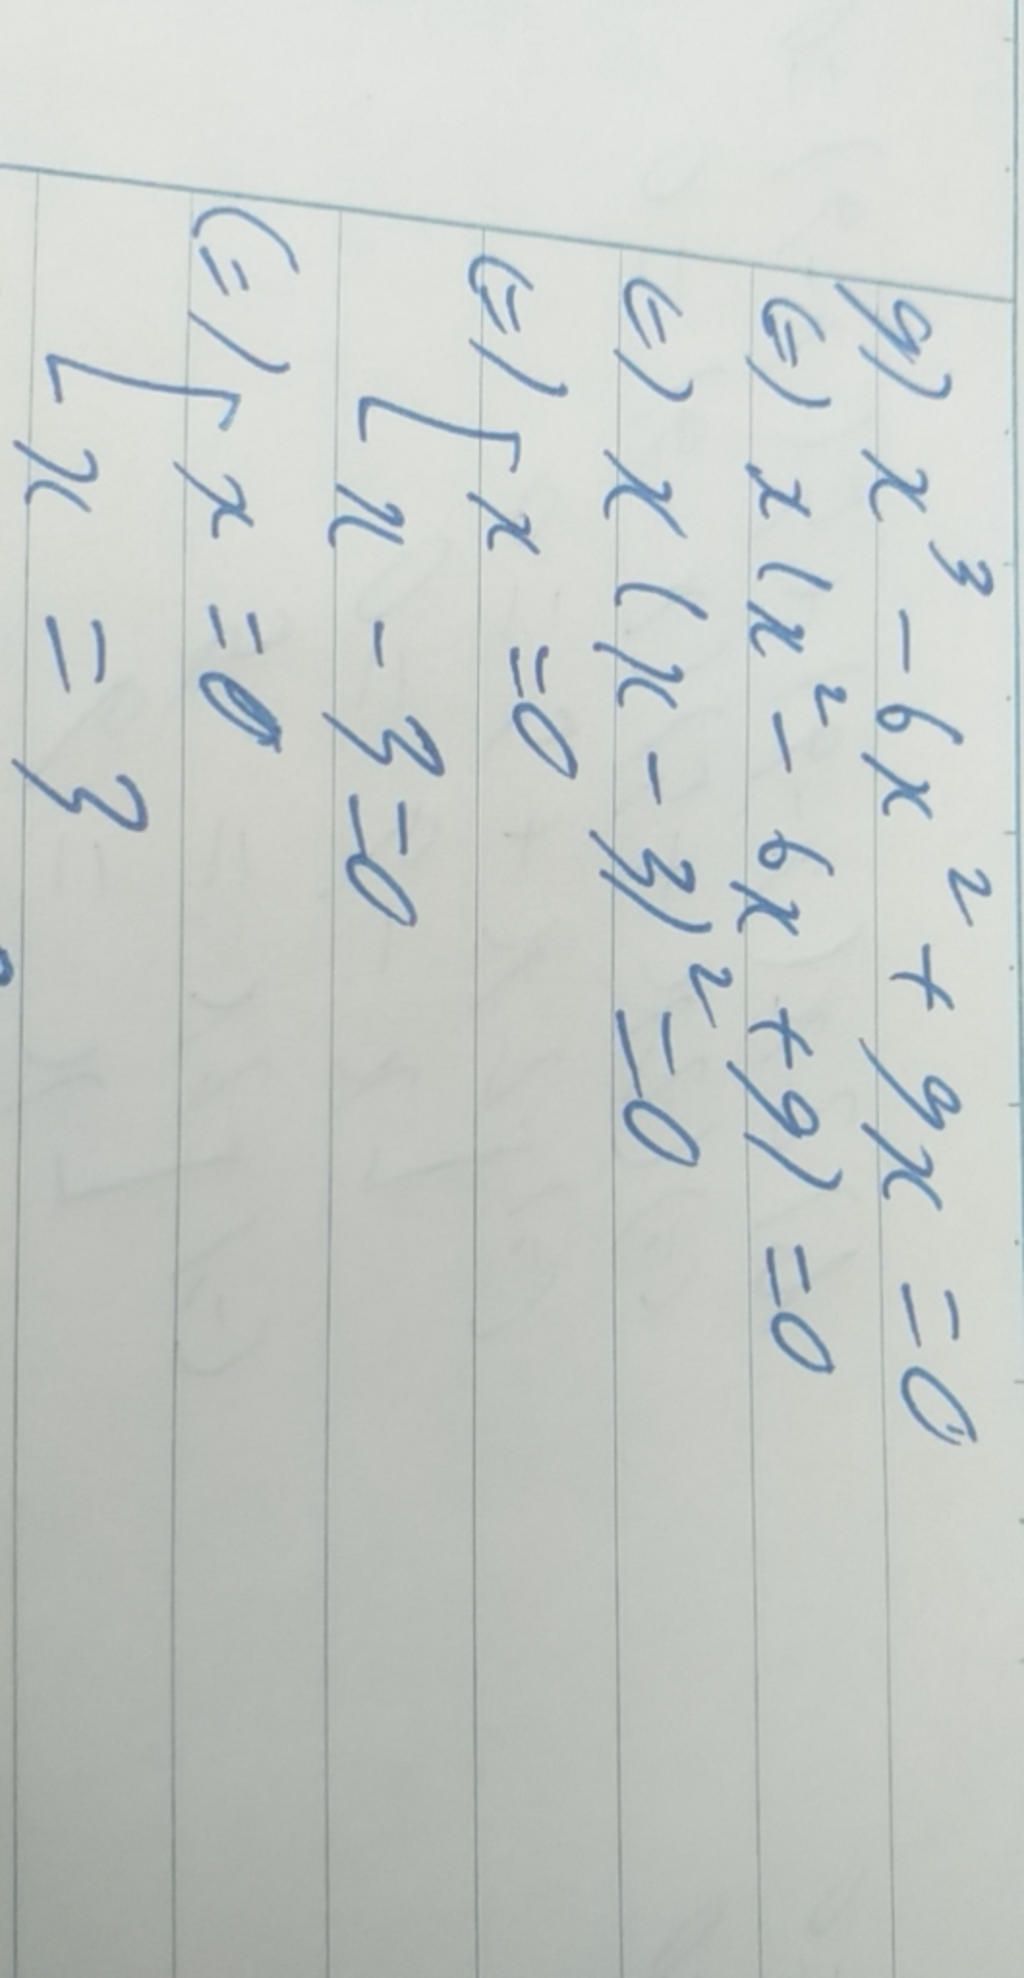 g) x³ - 6x² + 9x = 0
(=) x (x² - 6x + 9) = 0
(=) x (x - 3)² = 0
(=) [ x = 0
[ x - 3 = 0
(=) [ x = 0
[ x = 3